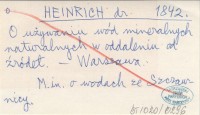 HEINRICH dr. 1842.
O używaniu wód mineralnych
naturalnych w oddaleniu od
źródeł. Warszawa.
M.in. o wodach ze Szczaw-
nicy.